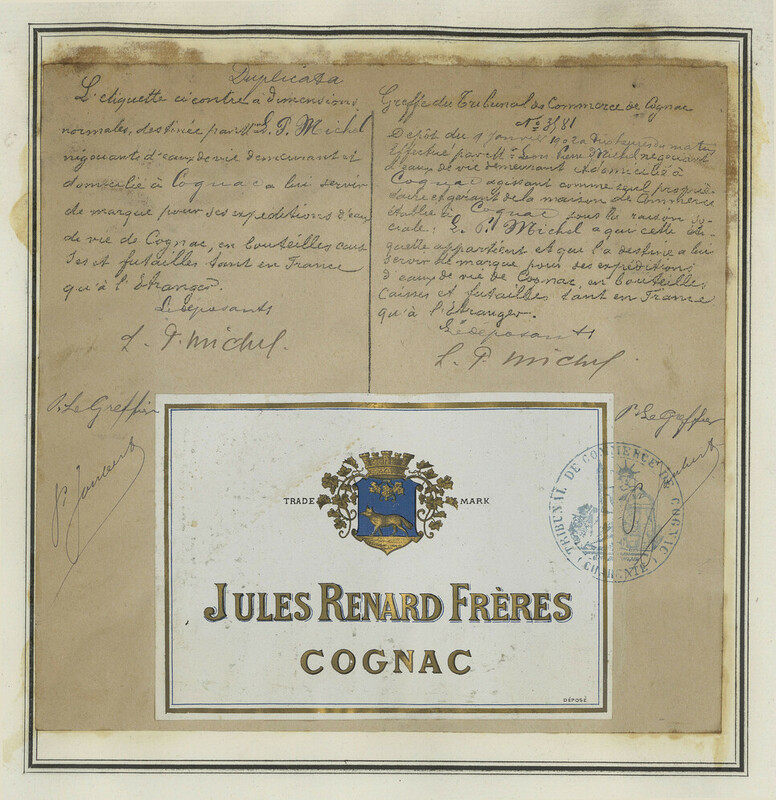 Duplicata
L'etiquette ci contre à dimensions
normales, destinée par Mr L. P. Michel
négociants d'eaux de vie demeurant et
domicilié à Cognac a lui servir
de marque pour ses expeditions d'eaux
de vie de Cognac, en bouteilles cais
ses et futailles tant en France
qu'à l'Etranger.
Le déposants
L. P. Michel.
P. Le Greffier
Greffe du Tribunal de Commerce de Cognac
No 3581
Dépôt du 1 Janvier 1902 a dix heures du matin
Effectué par Mr Leon Pierre Michel negociant
d'eaux de vie demeurant et domicilié à
Cognac agissant comme seul proprié-
taire et gérant de la maison de Commerce
établie à Cognac sous la raison So
ciale: L. P. Michel a qui cette éti-
quette appartient et qui l'a destine a lui
servir de marque pour ses expéditions
d'eaux de vie de Cognac, en bouteilles
Caisses et futailles tant en France
qu'à l'Etranger.
Le déposants
L. P. Michel
P. Le Greffier
TRADE MARK
JULES RENARD FRÈRES
COGNAC
DÉPOSÉ
TRIBUNAL DE COMMERCE DE COGNAC
(CHARENTE)